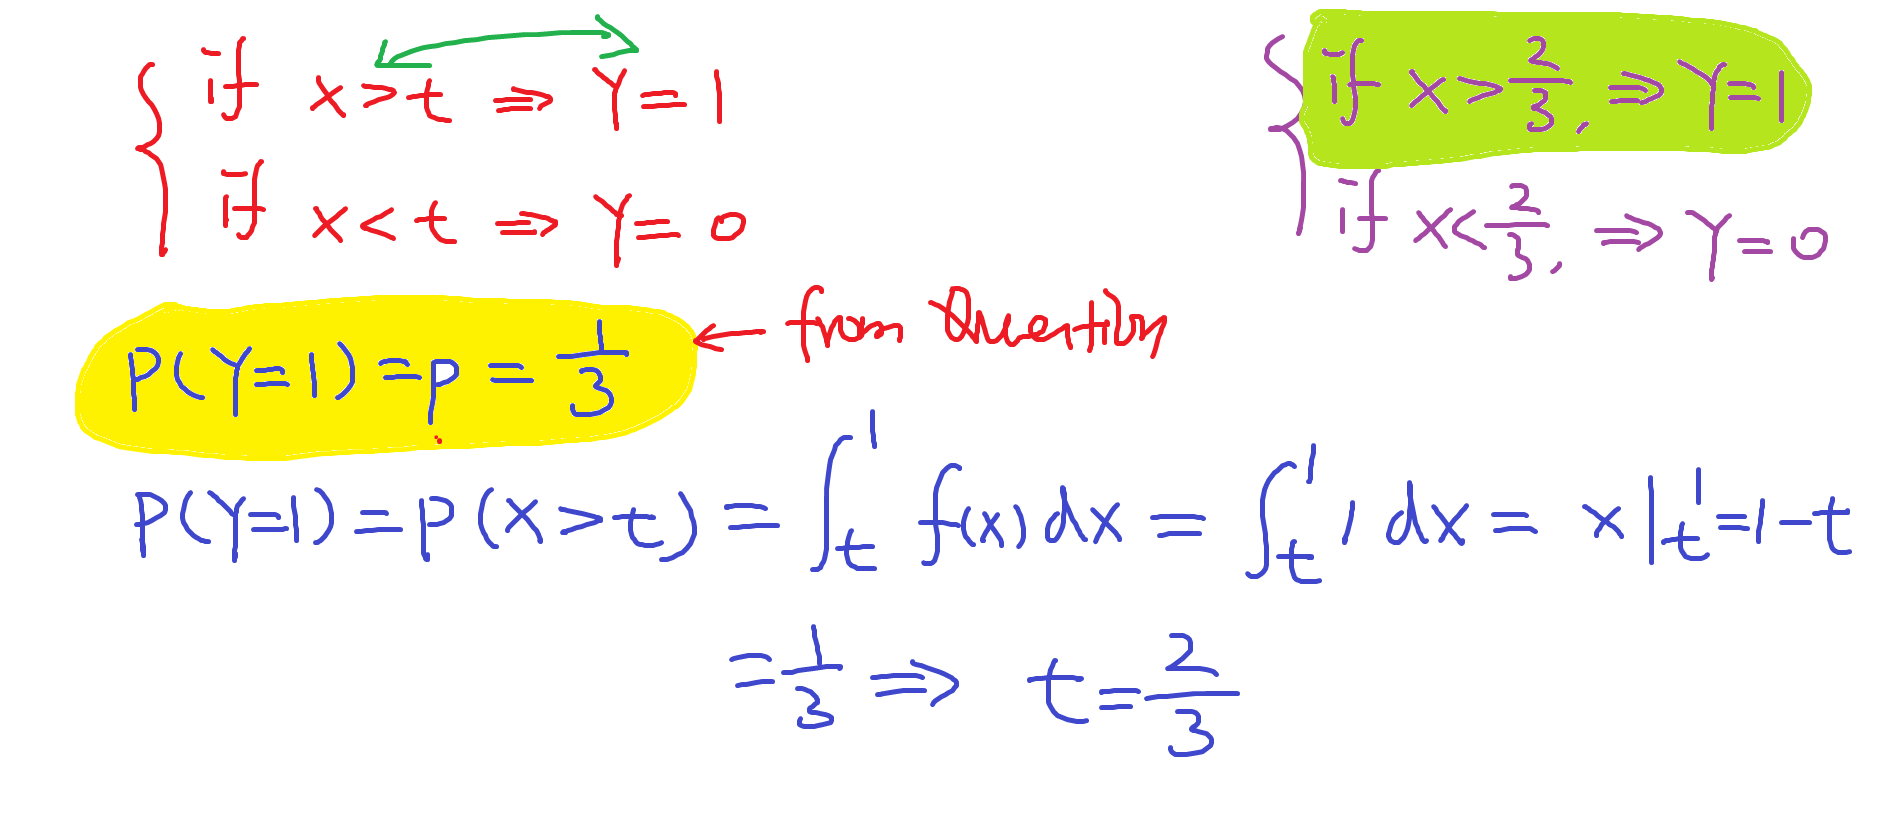 if x>t ⇒ Y=1
if x<t ⇒ Y=0
if x>2/3, ⇒ Y=1
if x<2/3, ⇒ Y=0
P(Y=1)=p=1/3 ← from Question
P(Y=1)=P(X>t)=∫_t^1 f(x)dx=∫_t^1 1 dx= x|_t^1=1-t
=1/3 ⇒ t=2/3